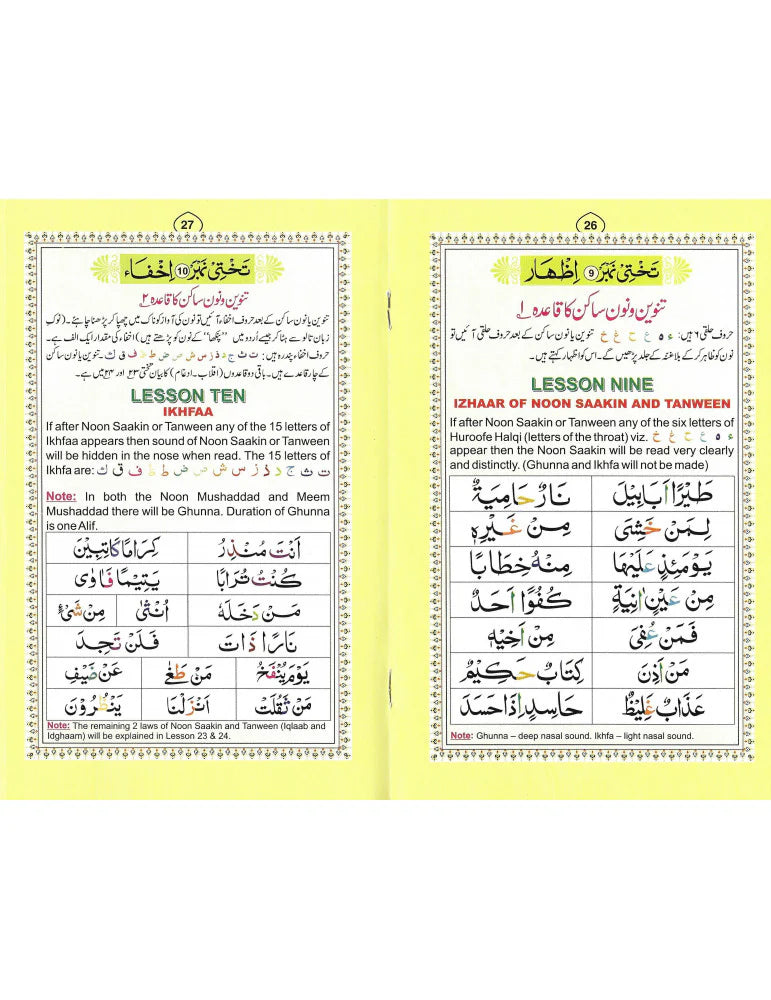 26
تختی نمبر 9 اظہار
تنوین و نون ساکن کا قاعدہ ۱
حروف حلقی ۶ ہیں: ء ہ ع ح غ خ تنوین یا نون ساکن کے بعد حروف حلقی آئیں تو
نون کو ظاہر کر کے بلا غنہ کے جلد پڑھیں گے۔ اس کو اظہار کہتے ہیں۔
LESSON NINE
IZHAAR OF NOON SAAKIN AND TANWEEN
If after Noon Saakin or Tanween any of the six letters of
Huroofe Halqi (letters of the throat) viz. ء ہ ع ح غ خ
appear then the Noon Saakin will be read very clearly
and distinctly. (Ghunna and Ikhfa will not be made)
طَيْرًا اَبَابِيْلَ نَارٌ حَامِيَةٌ
لِمَنْ خَشِىَ مِنْ غَيْرِهٖ
يَوْمَئِذٍ عَلَيْهَا مِنْهُ خِطَابًا
مِنْ عَيْنٍ اٰنِيَةٍ كُفُوًا اَحَدٌ
فَمَنْ عُفِىَ مِنْ اَخِيْهِ
مَنْ اَذِنَ كِتَابٌ حَكِيْمٌ
عَذَابٌ غَلِيْظٌ حَاسِدٍ اِذَا حَسَدَ
Note: Ghunna – deep nasal sound. Ikhfa – light nasal sound.
27
تختی نمبر 10 اخفاء
تنوین و نون ساکن کا قاعدہ ۲
تنوین یا نون ساکن کے بعد حروف اخفاء آئیں تو نون کی آواز کو ناک میں چھپا کر پڑھنا چاہئے۔ (نوک
زبان تالو سے ہٹا کر جیسے اردو میں "پنکھا" کے نون کو پڑھتے ہیں) اخفاء کی مقدار ایک الف ہے۔
حروف اخفاء پندرہ ہیں: ت ث ج د ذ ز س ش ص ض ط ظ ف ق ک۔ تنوین یا نون ساکن
کے چار قاعدے ہیں۔ باقی دو قاعدوں (اقلاب۔ ادغام) کا بیان تختی ۲۳ اور ۲۴ میں ہے۔
LESSON TEN
IKHFAA
If after Noon Saakin or Tanween any of the 15 letters of
Ikhfaa appears then sound of Noon Saakin or Tanween
will be hidden in the nose when read. The 15 letters of
Ikhfa are: ت ث ج د ذ ز س ش ص ض ط ظ ف ق ك
Note: In both the Noon Mushaddad and Meem
Mushaddad there will be Ghunna. Duration of Ghunna
is one Alif.
اَنْتَ مُنْذِرُ كِرَامًا كَاتِبِيْنَ
كُنْتُ تُرَابًا يَتِيْمًا فَاٰوٰى
مَنْ دَخَلَهٗ اُنْثٰى مِنْ شَىْءٍ
نَارًا ذَاتَ فَلَنْ تَجِدَ
يَوْمَ يُنْفَخُ مَنْ طَغٰى عَنْ ضَيْفِ
مَنْ ثَقُلَتْ اَنْزَلْنَا يَنْظُرُوْنَ
Note: The remaining 2 laws of Noon Saakin and Tanween (Iqlaab and
Idghaam) will be explained in Lesson 23 & 24.